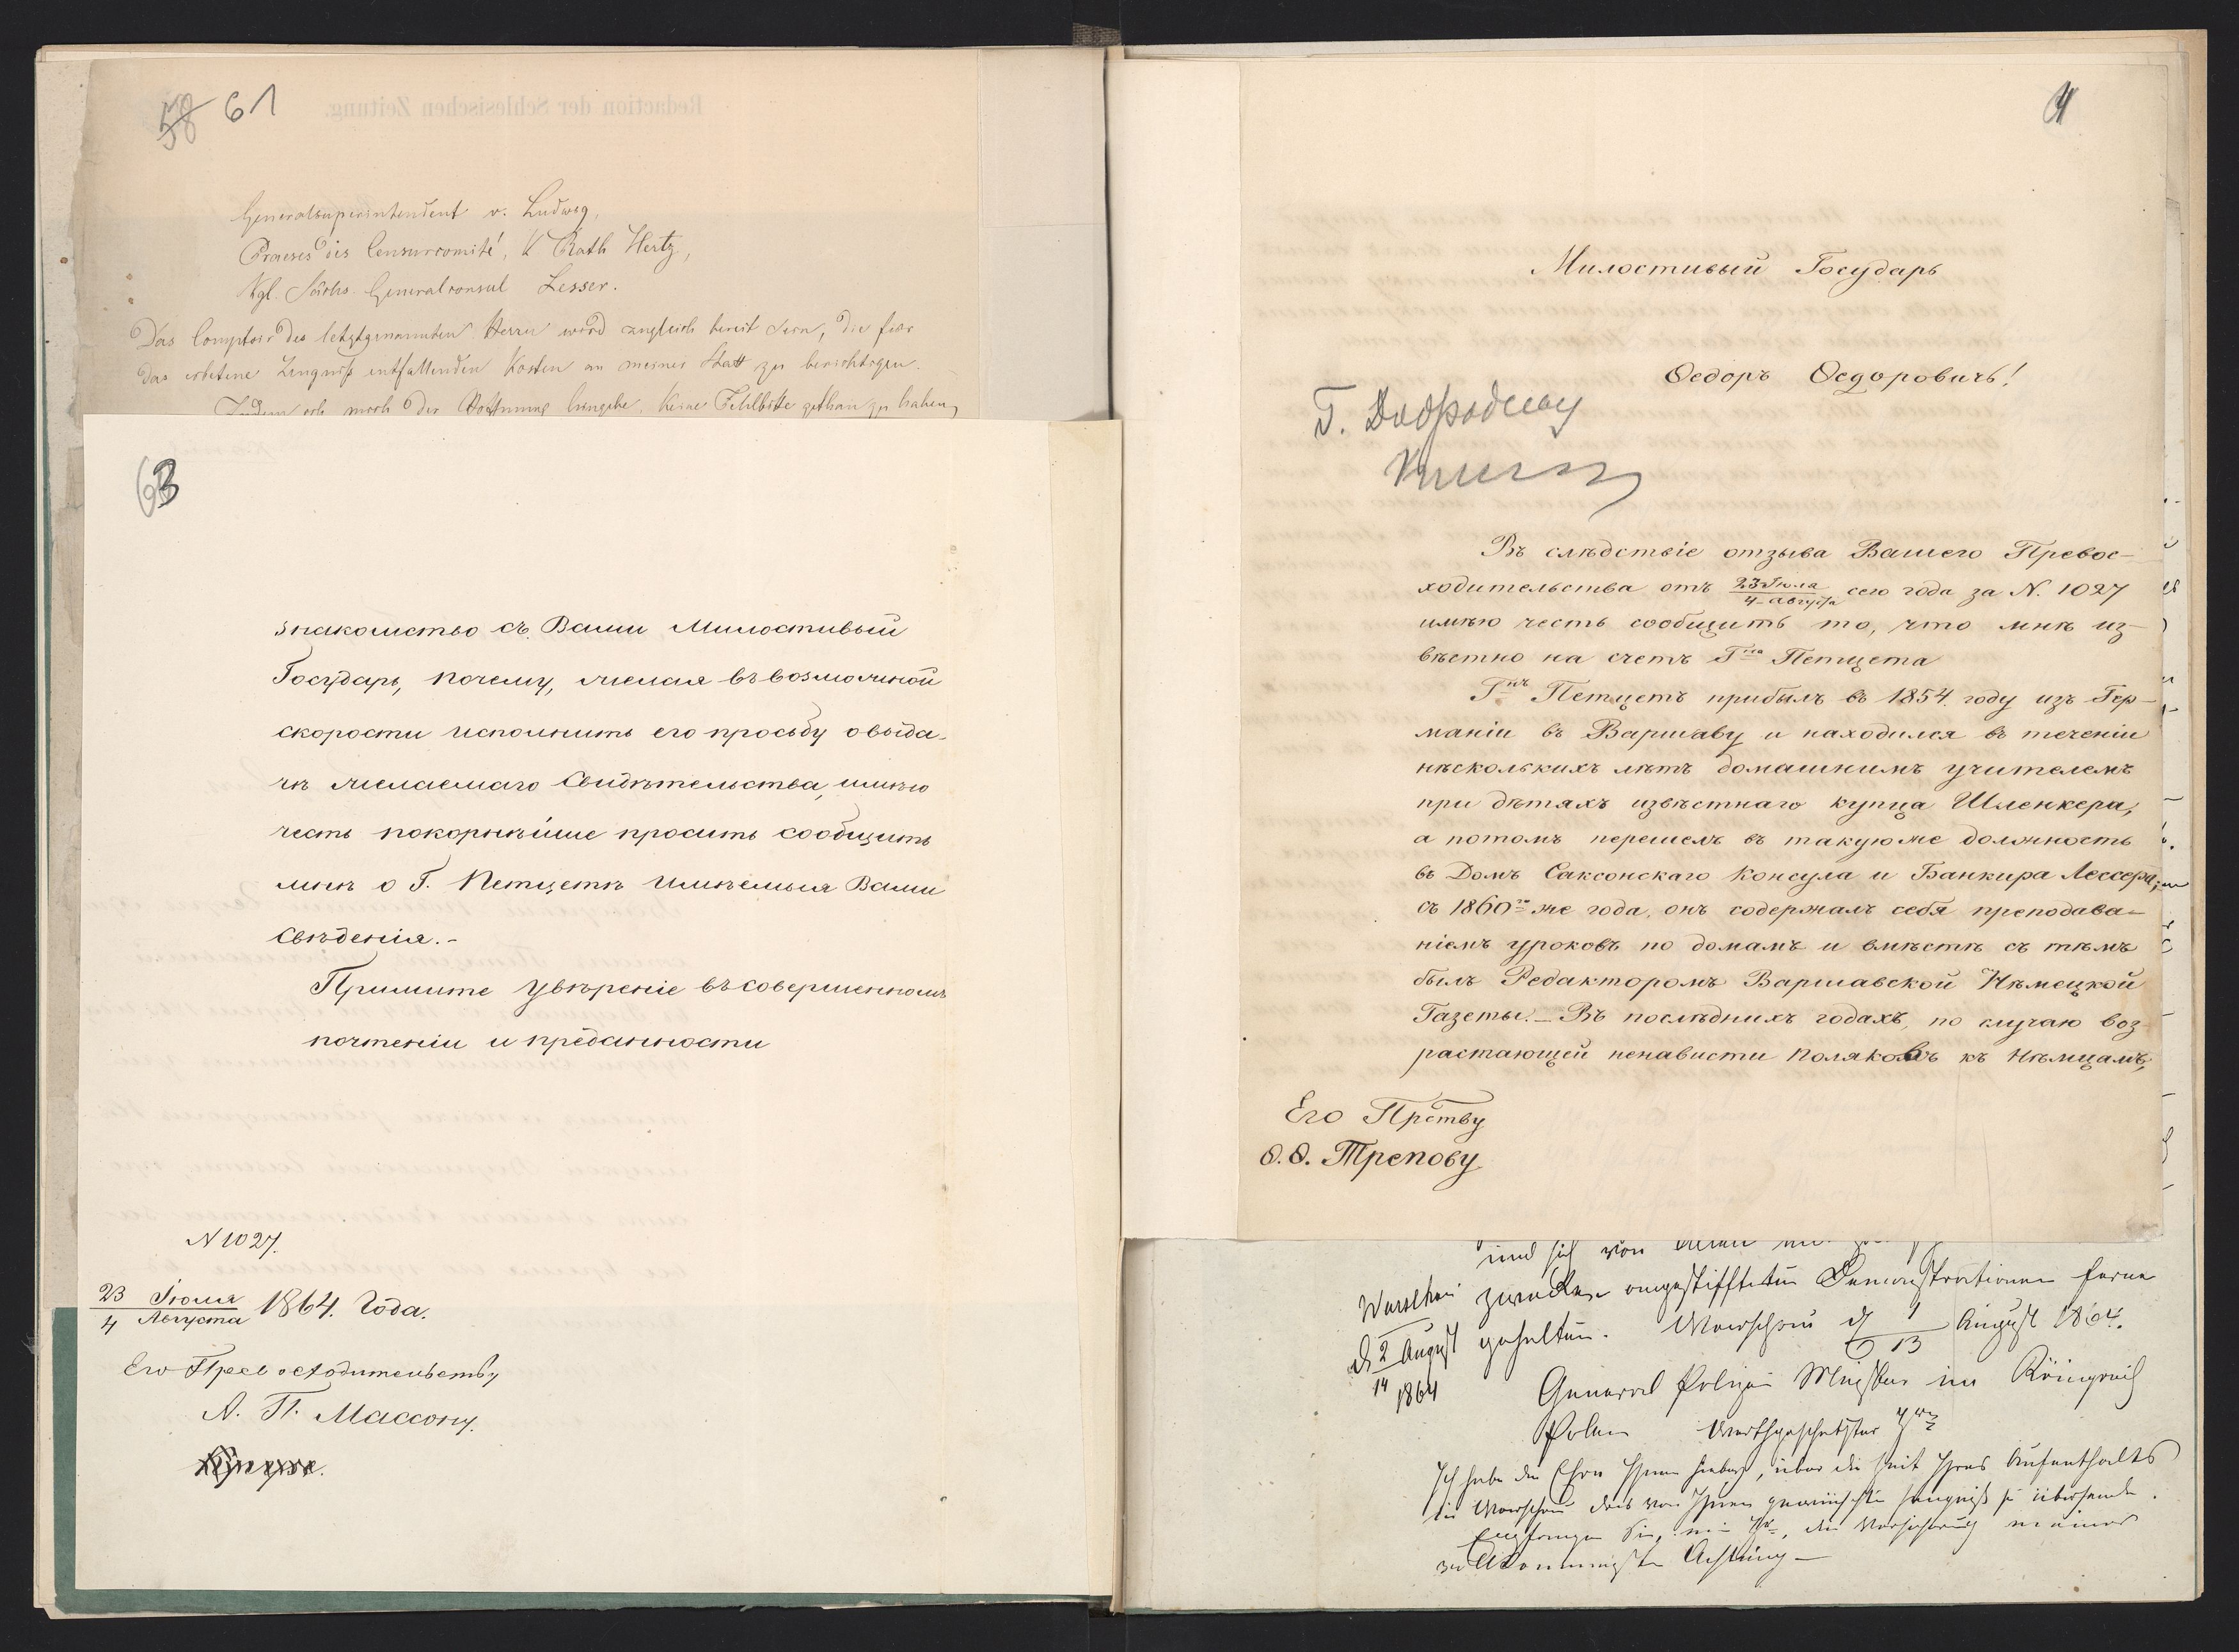 58 61
Redaction der Schlesischen Zeitung.
Generalsuperintendent v. Ludwig,
Praeses des Censurcomité, K Rath Hertz,
Kgl. Sächs. Generalconsul Lesser.
Das Comptoir des letztgenannten Herrn wird zugleich bereit sein, die für
das erbetene Zeugniß entfallenden Kosten an meiner Statt zu berichtigen.
Indem ich mich der Hoffnung hingebe, keine Fehlbitte gethan zu haben,
63
знакомство съ Вами Милостивый
Государь, почему, желая въ возможной
скорости исполнить его просьбу о выда-
чѣ желаемаго Свидѣтельства, имѣю
честь покорнѣйше просить сообщить
мнѣ о Г. Петцетѣ имѣемыя Вами
Свѣденія.-
Примите увѣреніе въ совершенномъ
почтеніи и преданности
N 1027.
23 Іюля
4 Августа 1864. Года.
Его Превосходительству
А. П. Массону.
Милостивый Государь
Ѳедоръ Ѳедоровичъ!
Г.
Въ слѣдствіе отзыва Вашего Превос-
ходительства отъ 23 Іюля
4 Августа сего года за N. 1027
имѣю честь сообщить то, что мнѣ из-
вѣстно на счетъ Гна Петцета
Гнъ Петцетъ прибылъ въ 1854. году изъ Гер-
маніи въ Варшаву и находился въ теченіи
нѣсколькихъ лѣтъ домашнимъ учителемъ
при дѣтяхъ извѣстнаго купца Шленкера,
а потомъ перешелъ въ такую же должность
въ Домъ Саксонскаго Консула и Банкира Лессера;
съ 1860го же года, онъ содержалъ себя преподава-
ніемъ уроковъ по домамъ и вмѣстѣ съ тѣмъ
былъ Редакторомъ Варшавской Нѣмецкой
Газеты.- Въ послѣднихъ годахъ, по случаю воз-
растающей ненависти Поляковъ къ Нѣмцамъ,
Его Прству
Ѳ. Ѳ. Трепову
und sich von
Warschau zwecken angestifteten Demonstrationen ferne
d. 2 August gehalten. Warschau d 1 August 1864.
14 13
1864 General Polizei Meister im Königreich
Polen Werthgeschätzter
Ich habe die Ehre Ihnen hiebei, über die Zeit Ihres Aufenthalts
in Warschau das von Ihnen gewünschte Zeugniß zu übersenden.
Empfangen Sie, mein Hr, die Versicherung meiner
vollkommensten Achtung —